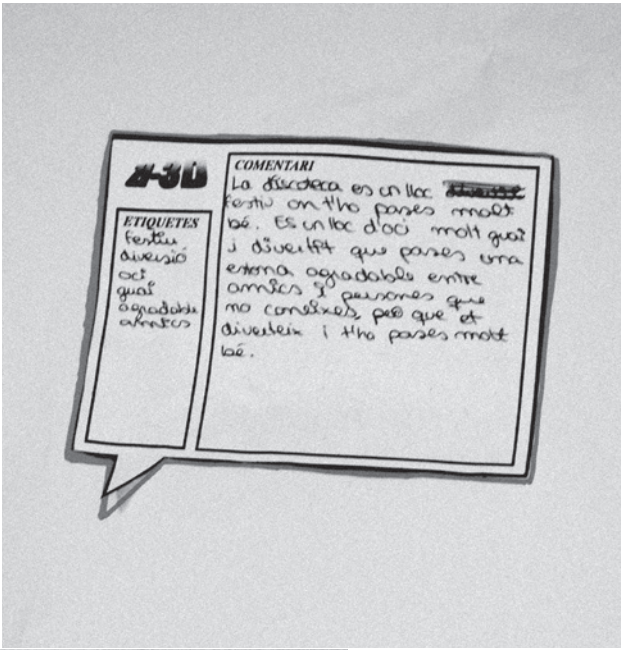 A-3D
ETIQUETES
festiu
diversió
oci
guai
agradable
amics
COMENTARI
La discoteca es un lloc
festiu on t'ho pases molt
bé. Es un lloc d'oci molt guai
i divertit que pases una
estona agradable entre
amics i persones que
no coneixes, peò que et
diverteix i t'ho pases molt
bé.